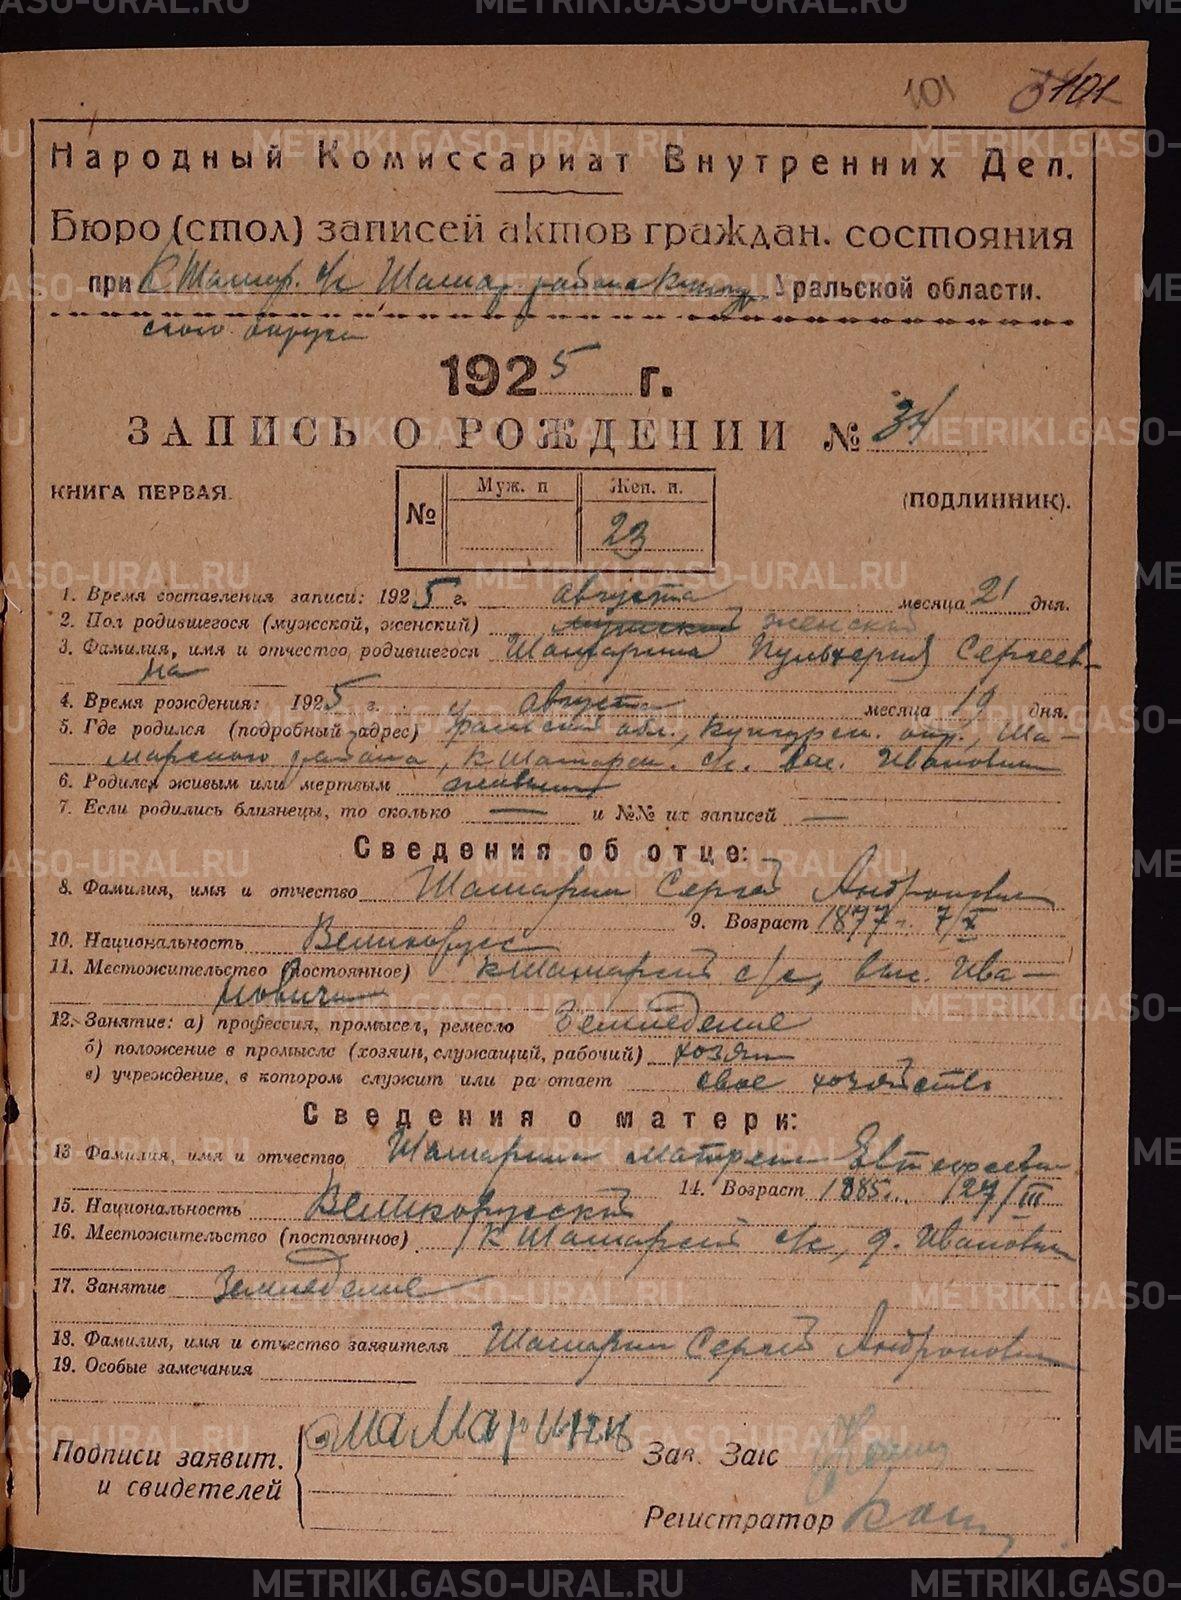 101 101
Народный Комиссариат Внутренних Дел.
Бюро (стол) записей актов граждан. состояния
при К Шамар. с/с Шамар. района Кунгур Уральской области.
ского округа
1925 г.
ЗАПИСЬ О РОЖДЕНИИ № 34
КНИГА ПЕРВАЯ. (ПОДЛИННИК).
№ Муж. п Жен. п.
23
1. Время составления записи: 1925 г. августа месяца 21 дня.
2. Пол родившегося (мужской, женский) мужской женский
3. Фамилия, имя и отчество родившегося Шамарина Пульхерия Сергеев-
на
4. Время рождения: 1925 г. августа месяца 19 дня.
5. Где родился (подробный адрес) Уральской обл., Кунгурск. окр., Ша-
марского района, К Шамарск. с/с. выс. Ивановичи
6. Родился живым или мертвым живым
7. Если родились близнецы, то сколько — и №№ их записей —
Сведения об отце:
8. Фамилия, имя и отчество Шамарин Сергей Андронович
9. Возраст 1877 г. 7/X
10. Национальность Великорусс
11. Местожительство (постоянное) К Шамарский с/с, выс. Ива-
новичи
12. Занятие: а) профессия, промысел, ремесло Земледелие
б) положение в промысле (хозяин, служащий, рабочий) хозяин
в) учреждение, в котором служит или ра отает свое хозяйство
Сведения о матери:
13 Фамилия, имя и отчество Шамарина Матрена
14. Возраст 1885 г. 27/III
15. Национальность Великорусская
16. Местожительство (постоянное) К Шамарский с/с, д. Ивановичи
17. Занятие Земледелие
18. Фамилия, имя и отчество заявителя Шамарин Сергей Андронович
19. Особые замечания
Подписи заявит. Шамаринъ Зав. Загс
и свидетелей
Регистратор
METRIKI.GASO-URAL.RU